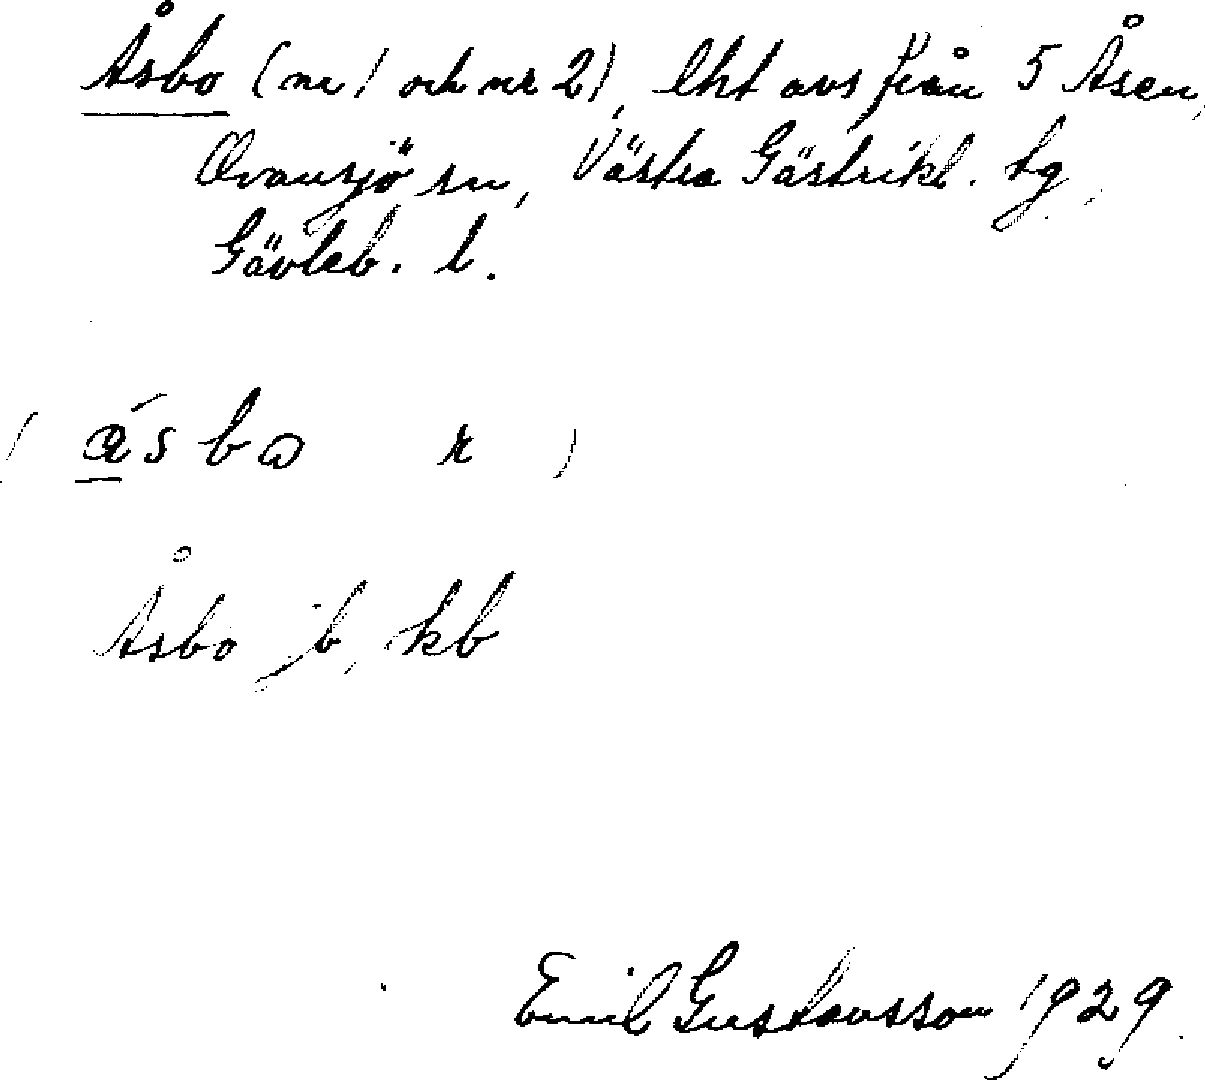 Åsbo (nr 1 och nr 2), lht avs från 5 Åsen,
Ovansjö sn, Västra Gästrikl. tg
Gävleb. l.
( ásbo r )
Åsbo jb, kb
Emil Gustavsson 1929